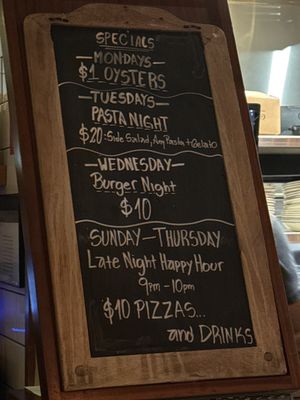 SPECIALS
MONDAYS
$1 OYSTERS
—TUESDAYS—
PASTA NIGHT
$20: Side Salad, Any Pasta + Gelato
—WEDNESDAY—
Burger Night
$10
SUNDAY—THURSDAY
Late Night Happy Hour
9pm - 10pm
$10 PIZZAS...
and DRINKS